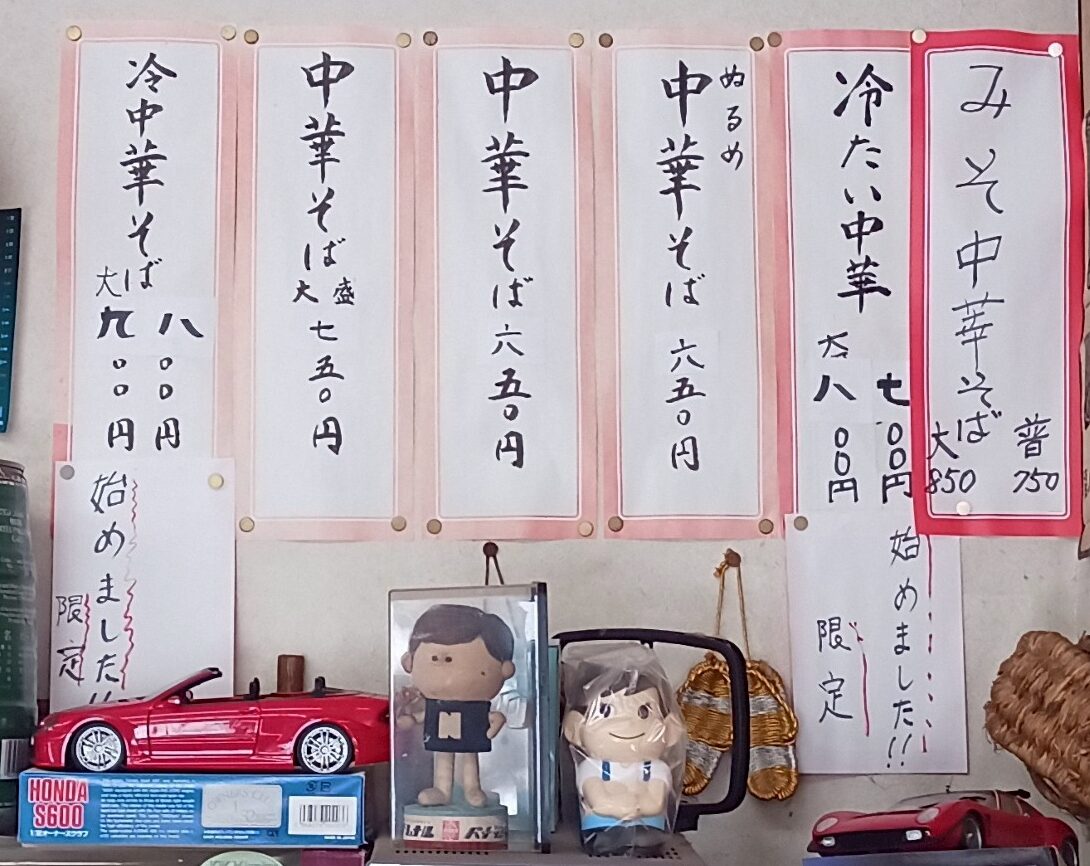 みそ中華そば
普
750
大
850
冷たい中華
七〇〇円
大
八〇〇円
始めました!!
限定
ぬるめ
中華そば
六五〇円
中華そば
六五〇円
中華そば
大盛
七五〇円
冷中華そば
八〇〇円
大
九〇〇円
始めました!!
限定
HONDA
S600
N